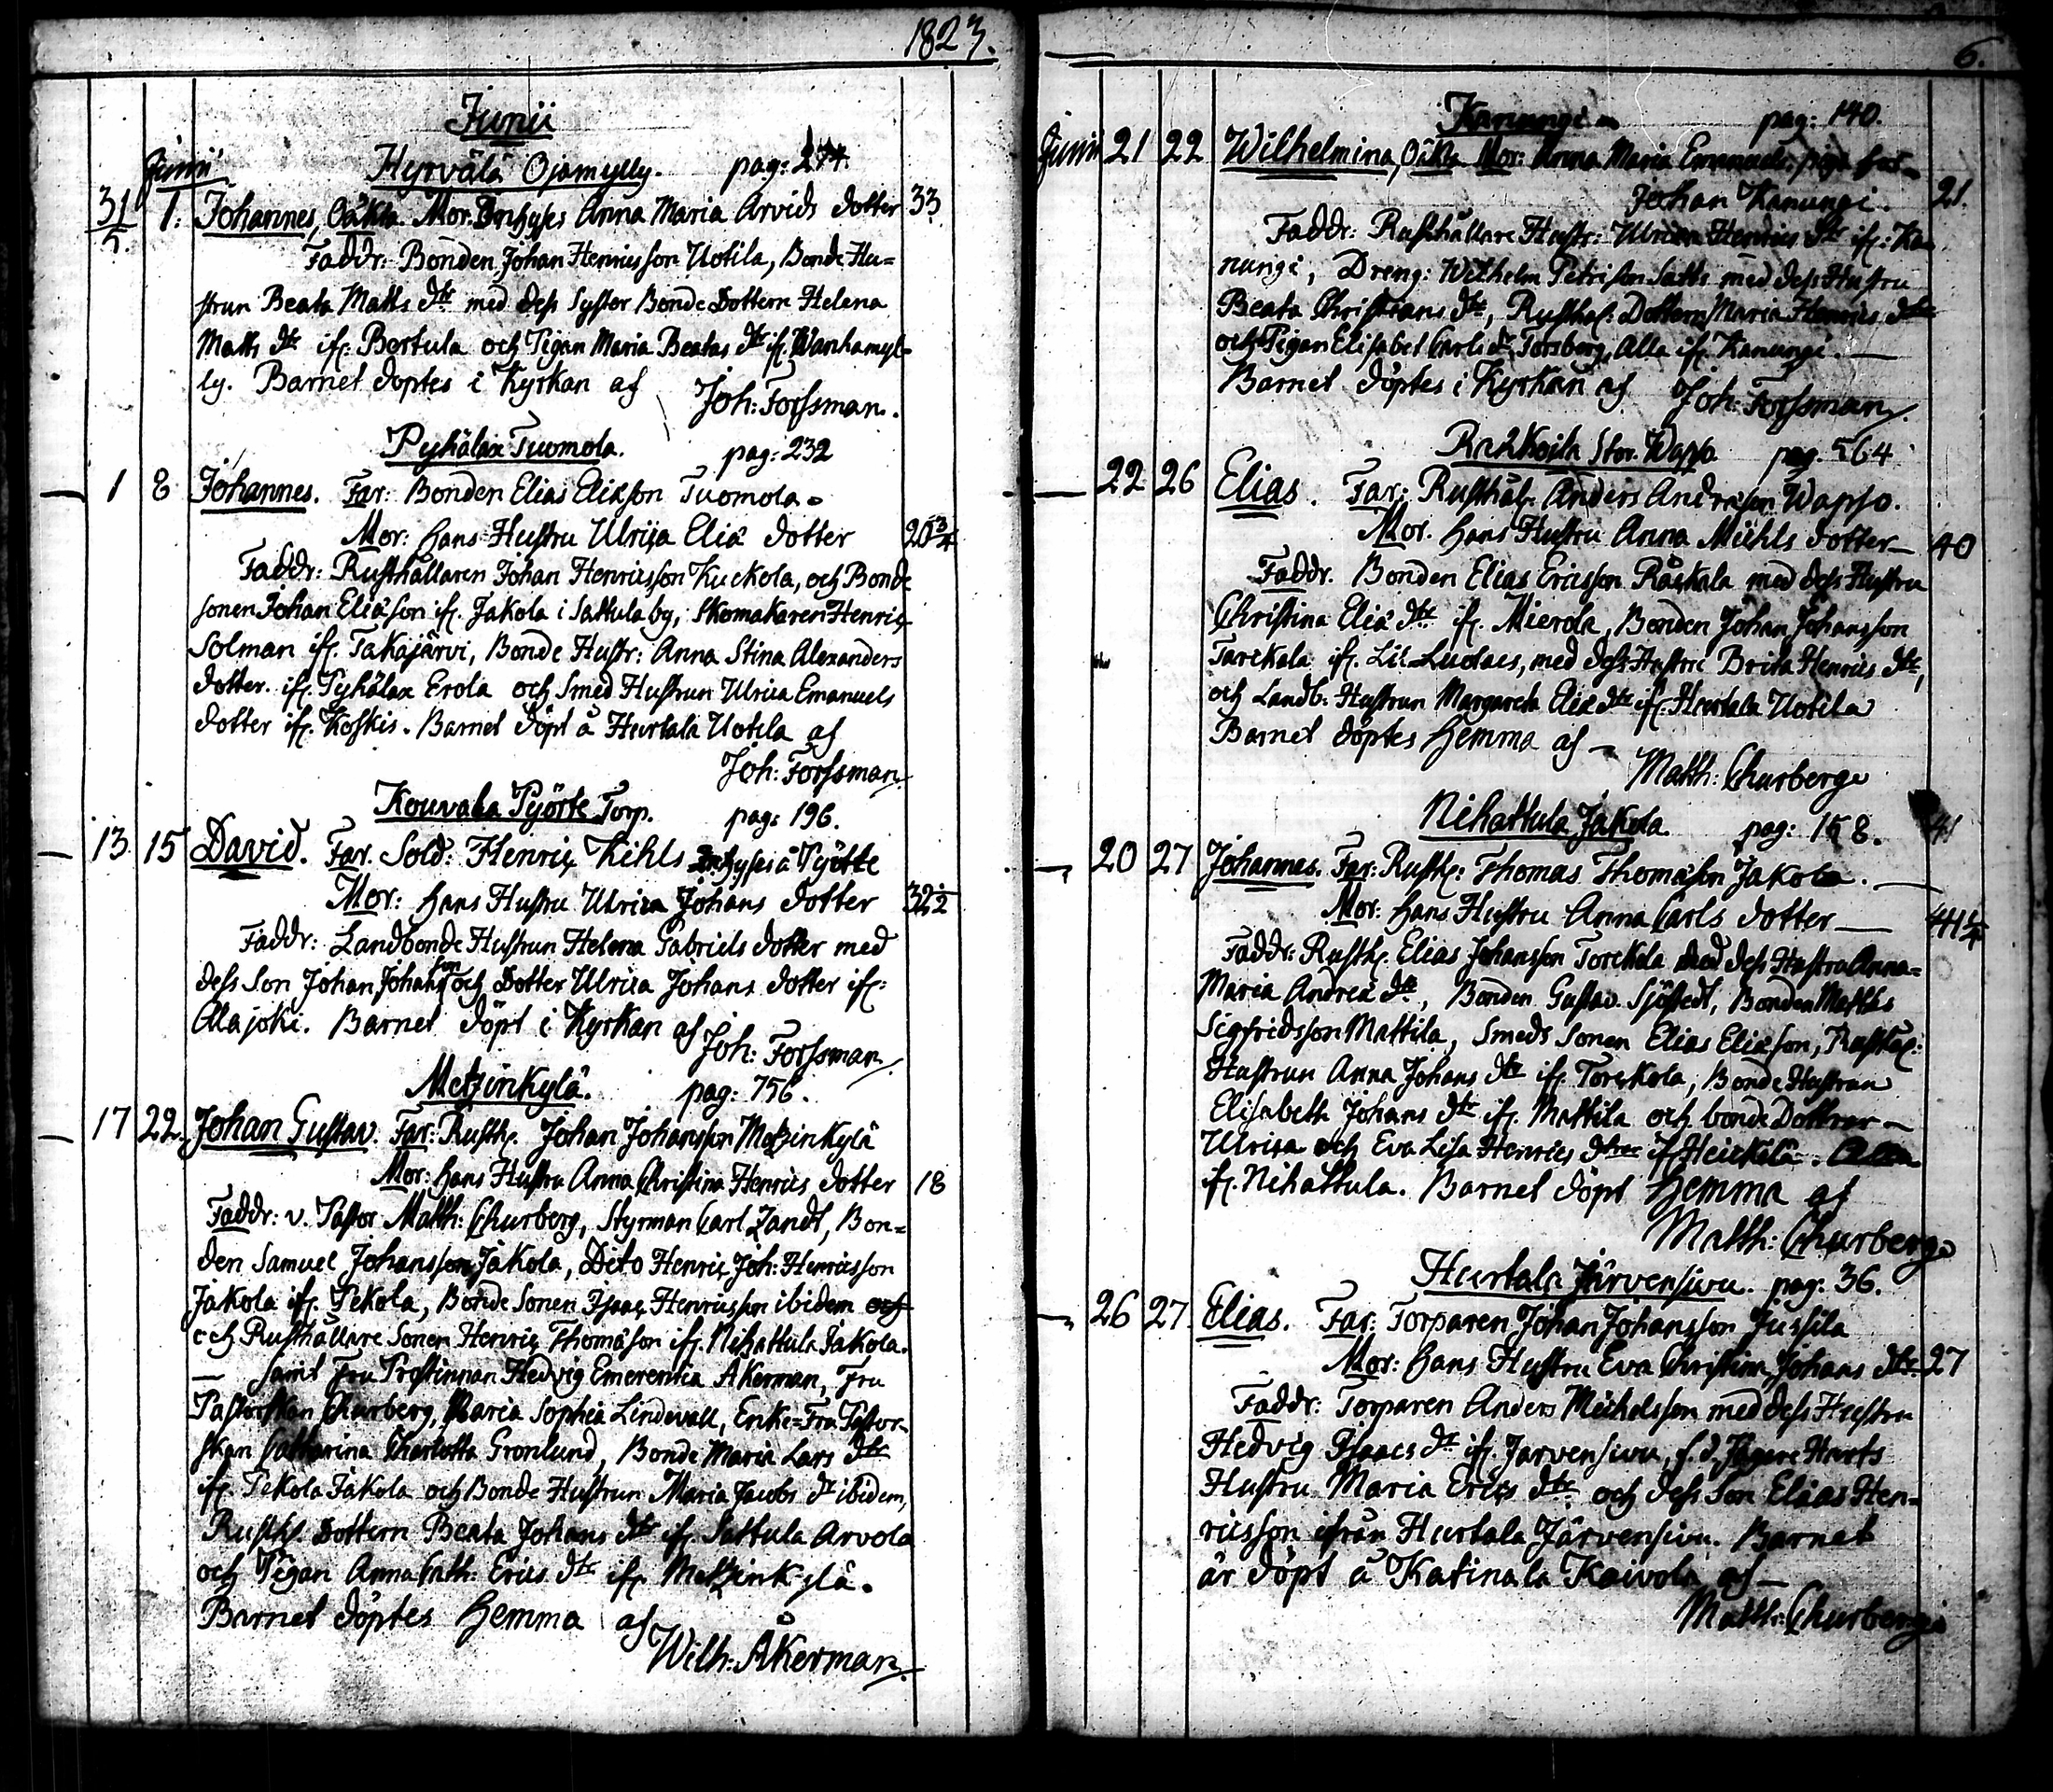 1823.
Junii
Junii Hyrvälä Ojamylly. pag: 274.
31/5. 1. Johannes, Oäkta Mor. Inhyses Anna Maria Arvids dotter 33
Faddr: Bonden Johan Henricsson Uotila, Bonde Hu=
strun Beata Matts dtr med dess Syster Bonde Dottern Helena
Matts dtr ifr. Bertula och Pigan Maria Beatas dtr ifr. Wanhamyl=
ly. Barnet döptes i Kyrkan af Joh: Forssman.
Pyhälax Tuomola. pag: 232
— 1 8 Johannes. Far: Bonden Elias Eliæson Tuomola.
Mor: hans Hustru Ulrica Eliæ dotter 20 3/4
Faddr: Rusthållaren Johan Henricsson Kuckola, och Bonde
sonen Johan Eliæson ifr. Jakola i Sattula by, Skomakaren Henric
Solman ifr. Takajärvi, Bonde Hustr: Anna Stina Alexanders
dotter. ifr. Pyhälax Erola och Smed Hustrun Ulrica Emanuels
dotter ifr. Koskis. Barnet döpt å Hurtala Uotila af
Joh: Forssman
Kouvala Pyörte Torp. pag: 196.
— 13 15 David. Far. Sold: Henric Kihls Inhyses å Pyötte
Mor: hans Hustru Ulrica Johans dotter 32 1/2
Faddr: Landbonde Hustrun Helena Gabriels dotter med
dess Son Johan Johansson och Dotter Ulrica Johans dotter ifr:
Alajoki. Barnet döpt i Kyrkan af Joh: Forssman
Metzinkylä. pag: 756.
— 17 22 Johan Gustav. Far: Rusth. Johan Johansson Metzinkylä
Mor: hans Hustru Anna Christina Henrics dotter 18
Faddr: v. Pastor Matth: Churberg, Styrman Carl Zandt, Bon=
den Samuel Johansson Jakola, Dito Henric Joh: Henricsson
Jakola ifr. Pekola, Bonde Sonen Isaac Henricsson ibidem och
och Rusthållare Sonen Henric Thomæson ifr. Nihattula Jakola.
— samt Fru Prostinnan Hedvig Emerentia Åkerman, Fru
Pastorskan Churberg, Maria Sophia Lindevall, Enke=Fru Pastor-
skan Catharina Charlotta Gronlund, Bonde Maria Lars dtr
ifr. Pekola Jakola och Bonde Hustrun Maria Jacobs dr ibidem,
Rusth. Dottern Beata Johans dtr ifr. Sattula Arvola
och Pigan Anna Cath: Erics dtr ifr. Metzinkylä.
Barnet döptes hemma af
Wilh: Åkerman
6.
Kanungi pag: 140.
Junii 21 22 Wilhelmina, Oäkta Mor: Anna Maria Emanuels, piga hos
Johan Kanungi. 21.
Faddr: Rusthållare Hustr: Ulrica Henrics dtr ifr: Ka
nungi, Dreng: Wilhelm Petrison Satts med dess Hustru
Beata Christians dtr, Rusthål. Dottern Maria Henrics dtr
och Pigan Elisabet Carls dr Torsberg, Alla ifr. Kanungi. —
Barnet döptes i Kyrkan af Joh: Forssman
Stor. Wapo pag. 564
— 22 26 Elias. Far: Rusthål. Anders Andræson Wapso.
Mor. hans Hustru Anna Michls dotter — 40
Faddr. Bonden Elias Ericsson Råskala med dess Hustru
Christina Eliæ dtr ifr. Mierola, Bonden Johan Johansson
Tarckala ifr. Lil-Ludocs, med dess Hustru Brita Henrics dtr,
och Landb: Hustrun Margareta Eliæ dtr ifr. Hurtala Uotila
Barnet döptes hemma af —
Matth: Churberg
Nihattula Jakola. pag: 158. 41
— 20 27 Johannes. Far: Rusth: Thomas Thomæson Jakola. —
Mor: hans Hustru Anna Carls dotter — 41 1/4
Faddr: Rusth. Elias Johansson Torckola med dess Hustru Anna=
Maria Andreæ dtr, Bonden Gustav Sjöstedt, Bonden Matths
Sigfridsson Mattila, Smeds Sonen Elias Eliæson, Rusthål:
Hustrun Anna Johans dtr ifr. Torckola, Bonde Hustrun
Elisabetha Johans dtr ifr. Mattila och bonde Dottrar —
Ulrica och Eva Lisa Henrics dtrar ifr Heickilä. Alla
ifr. Nihattula. Barnet döpt hemma af
Matth: Churberg
Hurtala Järvensivu. pag. 36.
— 26 27 Elias. Far: Torparen Johan Johansson Jussila
Mor: hans Hustru Eva Christina Johans dtr 27
Faddr: Torparen Anders Michelsson med dess Hustru
Hedvig Isaacs dr ifr. Jarvensivu, f.d. Jägare Hurts
Hustru Maria Erics dtr och dess Son Elias Hen=
ricsson ifrån Hurtala Järvensivu. Barnet
är döpt å Katinala Kaivola af —
Matth: Churberg